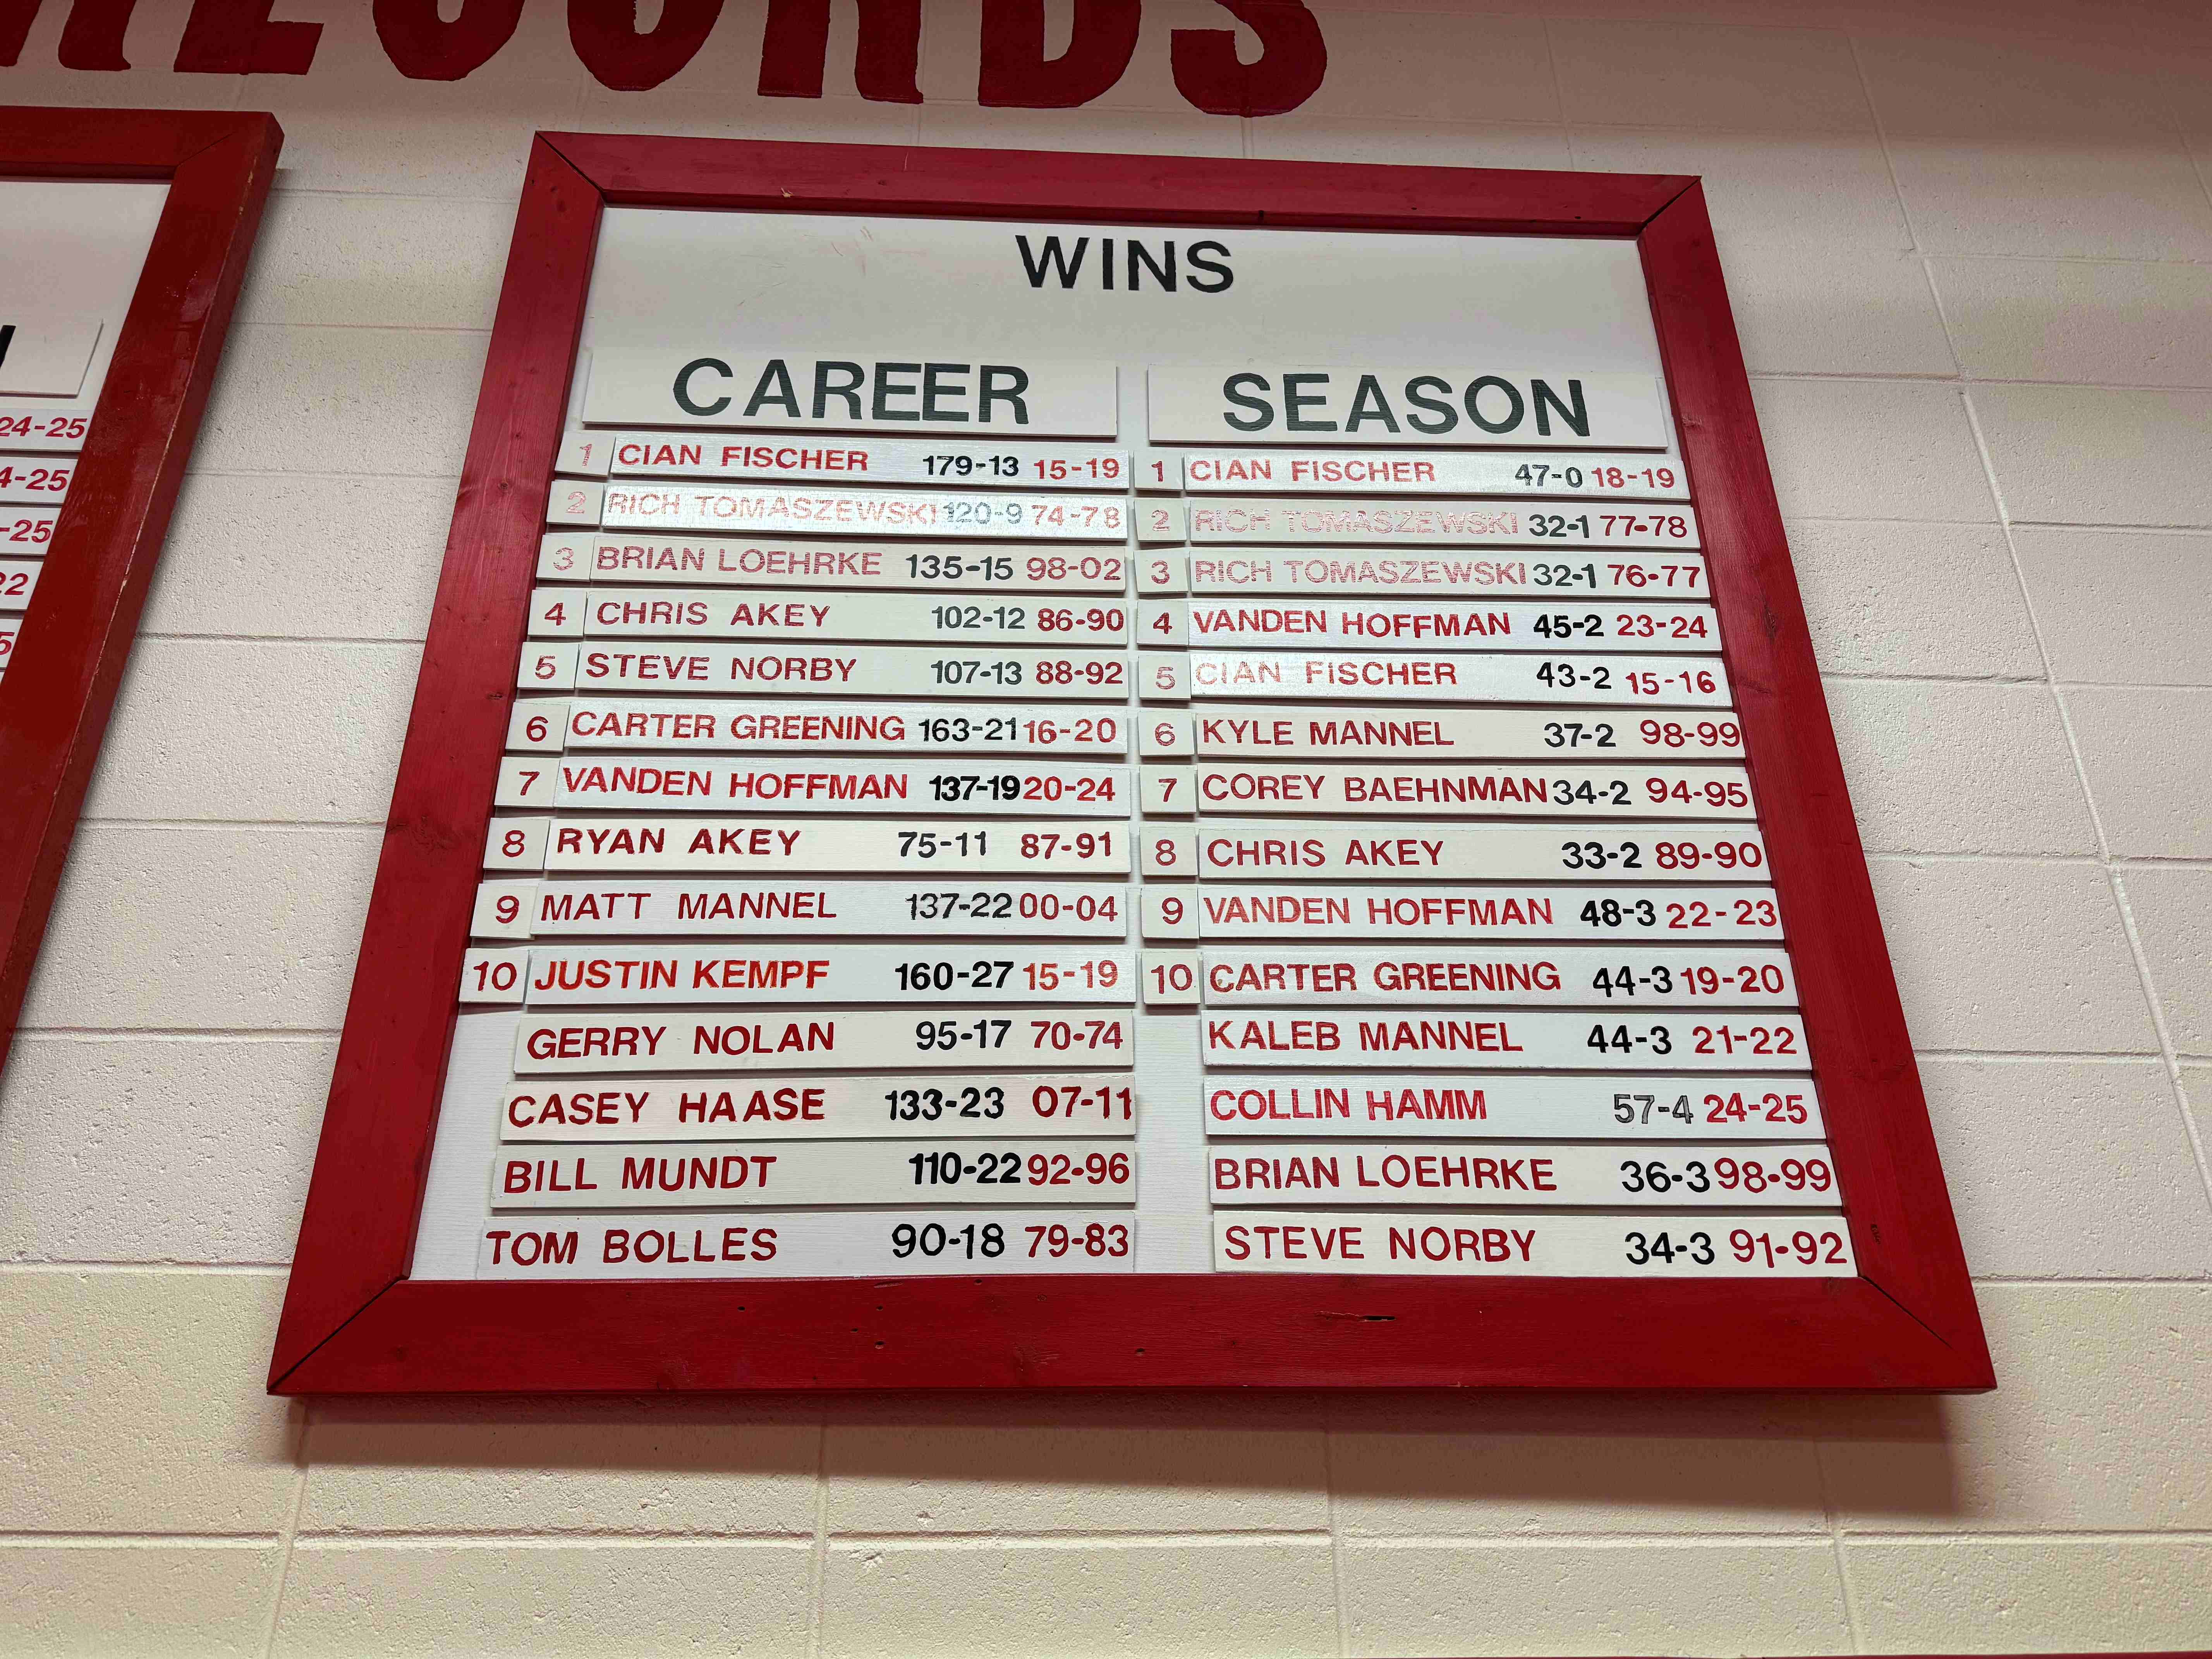 RECORDS
WINS
CAREER
1 CIAN FISCHER 179-13 15-19
2 RICH TOMASZEWSKI 120-9 74-78
3 BRIAN LOEHRKE 135-15 98-02
4 CHRIS AKEY 102-12 86-90
5 STEVE NORBY 107-13 88-92
6 CARTER GREENING 163-21 16-20
7 VANDEN HOFFMAN 137-19 20-24
8 RYAN AKEY 75-11 87-91
9 MATT MANNEL 137-22 00-04
10 JUSTIN KEMPF 160-27 15-19
GERRY NOLAN 95-17 70-74
CASEY HAASE 133-23 07-11
BILL MUNDT 110-22 92-96
TOM BOLLES 90-18 79-83
SEASON
1 CIAN FISCHER 47-0 18-19
2 RICH TOMASZEWSKI 32-1 77-78
3 RICH TOMASZEWSKI 32-1 76-77
4 VANDEN HOFFMAN 45-2 23-24
5 CIAN FISCHER 43-2 15-16
6 KYLE MANNEL 37-2 98-99
7 COREY BAEHNMAN 34-2 94-95
8 CHRIS AKEY 33-2 89-90
9 VANDEN HOFFMAN 48-3 22-23
10 CARTER GREENING 44-3 19-20
KALEB MANNEL 44-3 21-22
COLLIN HAMM 57-4 24-25
BRIAN LOEHRKE 36-3 98-99
STEVE NORBY 34-3 91-92
24-25
4-25
-25